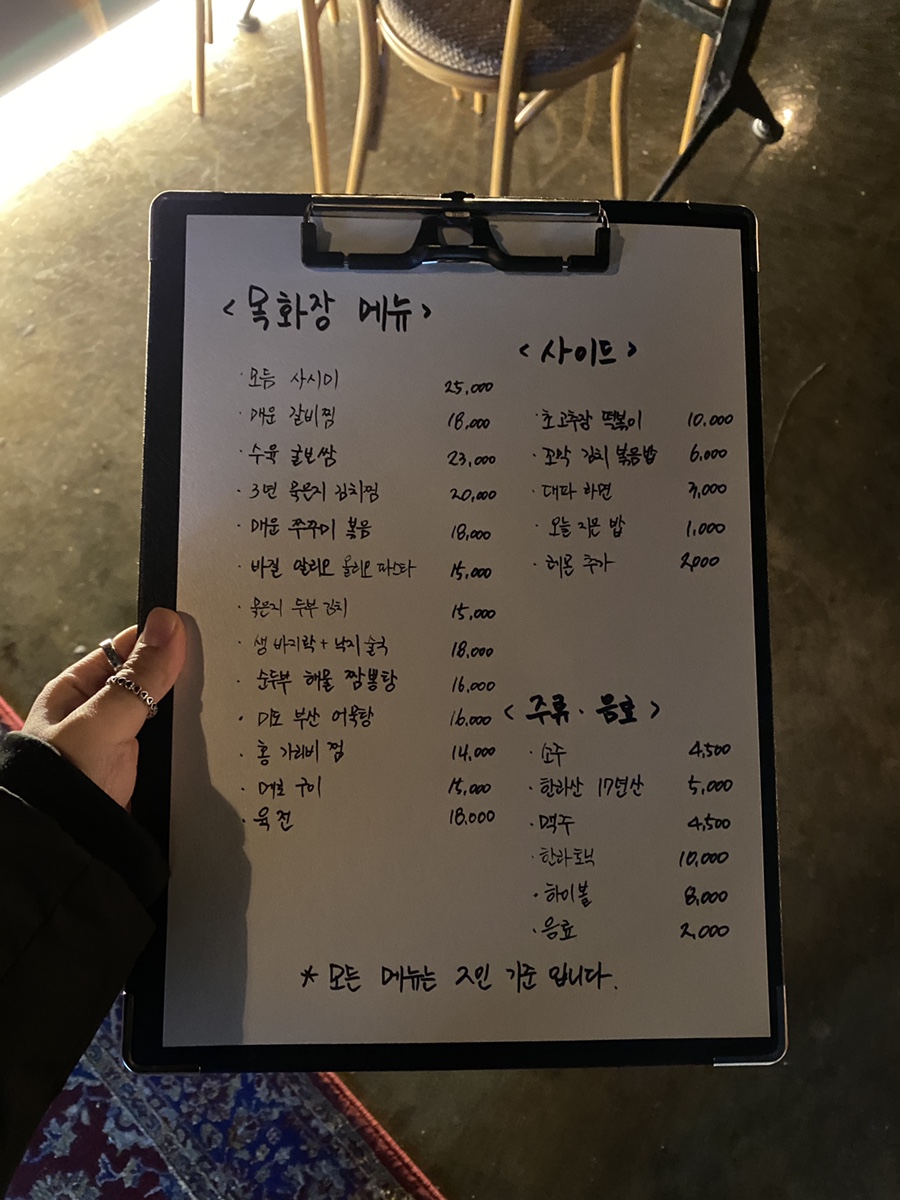 <목화장 메뉴>
· 모듬 사시미 25,000
· 매운 갈비찜 18,000
· 수육 굴보쌈 23,000
· 3년 묵은지 김치찜 20,000
· 매운 쭈꾸미 볶음 18,000
· 바질 알리오 올리오 파스타 15,000
· 묵은지 두부 김치 15,000
· 생 바지락 + 낙지 술국 18,000
· 순두부 해물 짬뽕탕 16,000
· 미도 부산 어묵탕 16,000
· 홍 가리비 찜 14,000
· 메로 구이 15,000
· 육전 18,000
<사이드>
· 초고추장 떡볶이 10,000
· 꼬막 김치 볶음밥 6,000
· 대파 라면 3,000
· 오늘 지은 밥 1,000
· 레몬 추가 2,000
<주류 · 음료>
· 소주 4,500
· 한라산 17년산 5,000
· 맥주 4,500
· 한라토닉 10,000
· 하이볼 8,000
· 음료 2,000
* 모든 메뉴는 2인 기준 입니다.